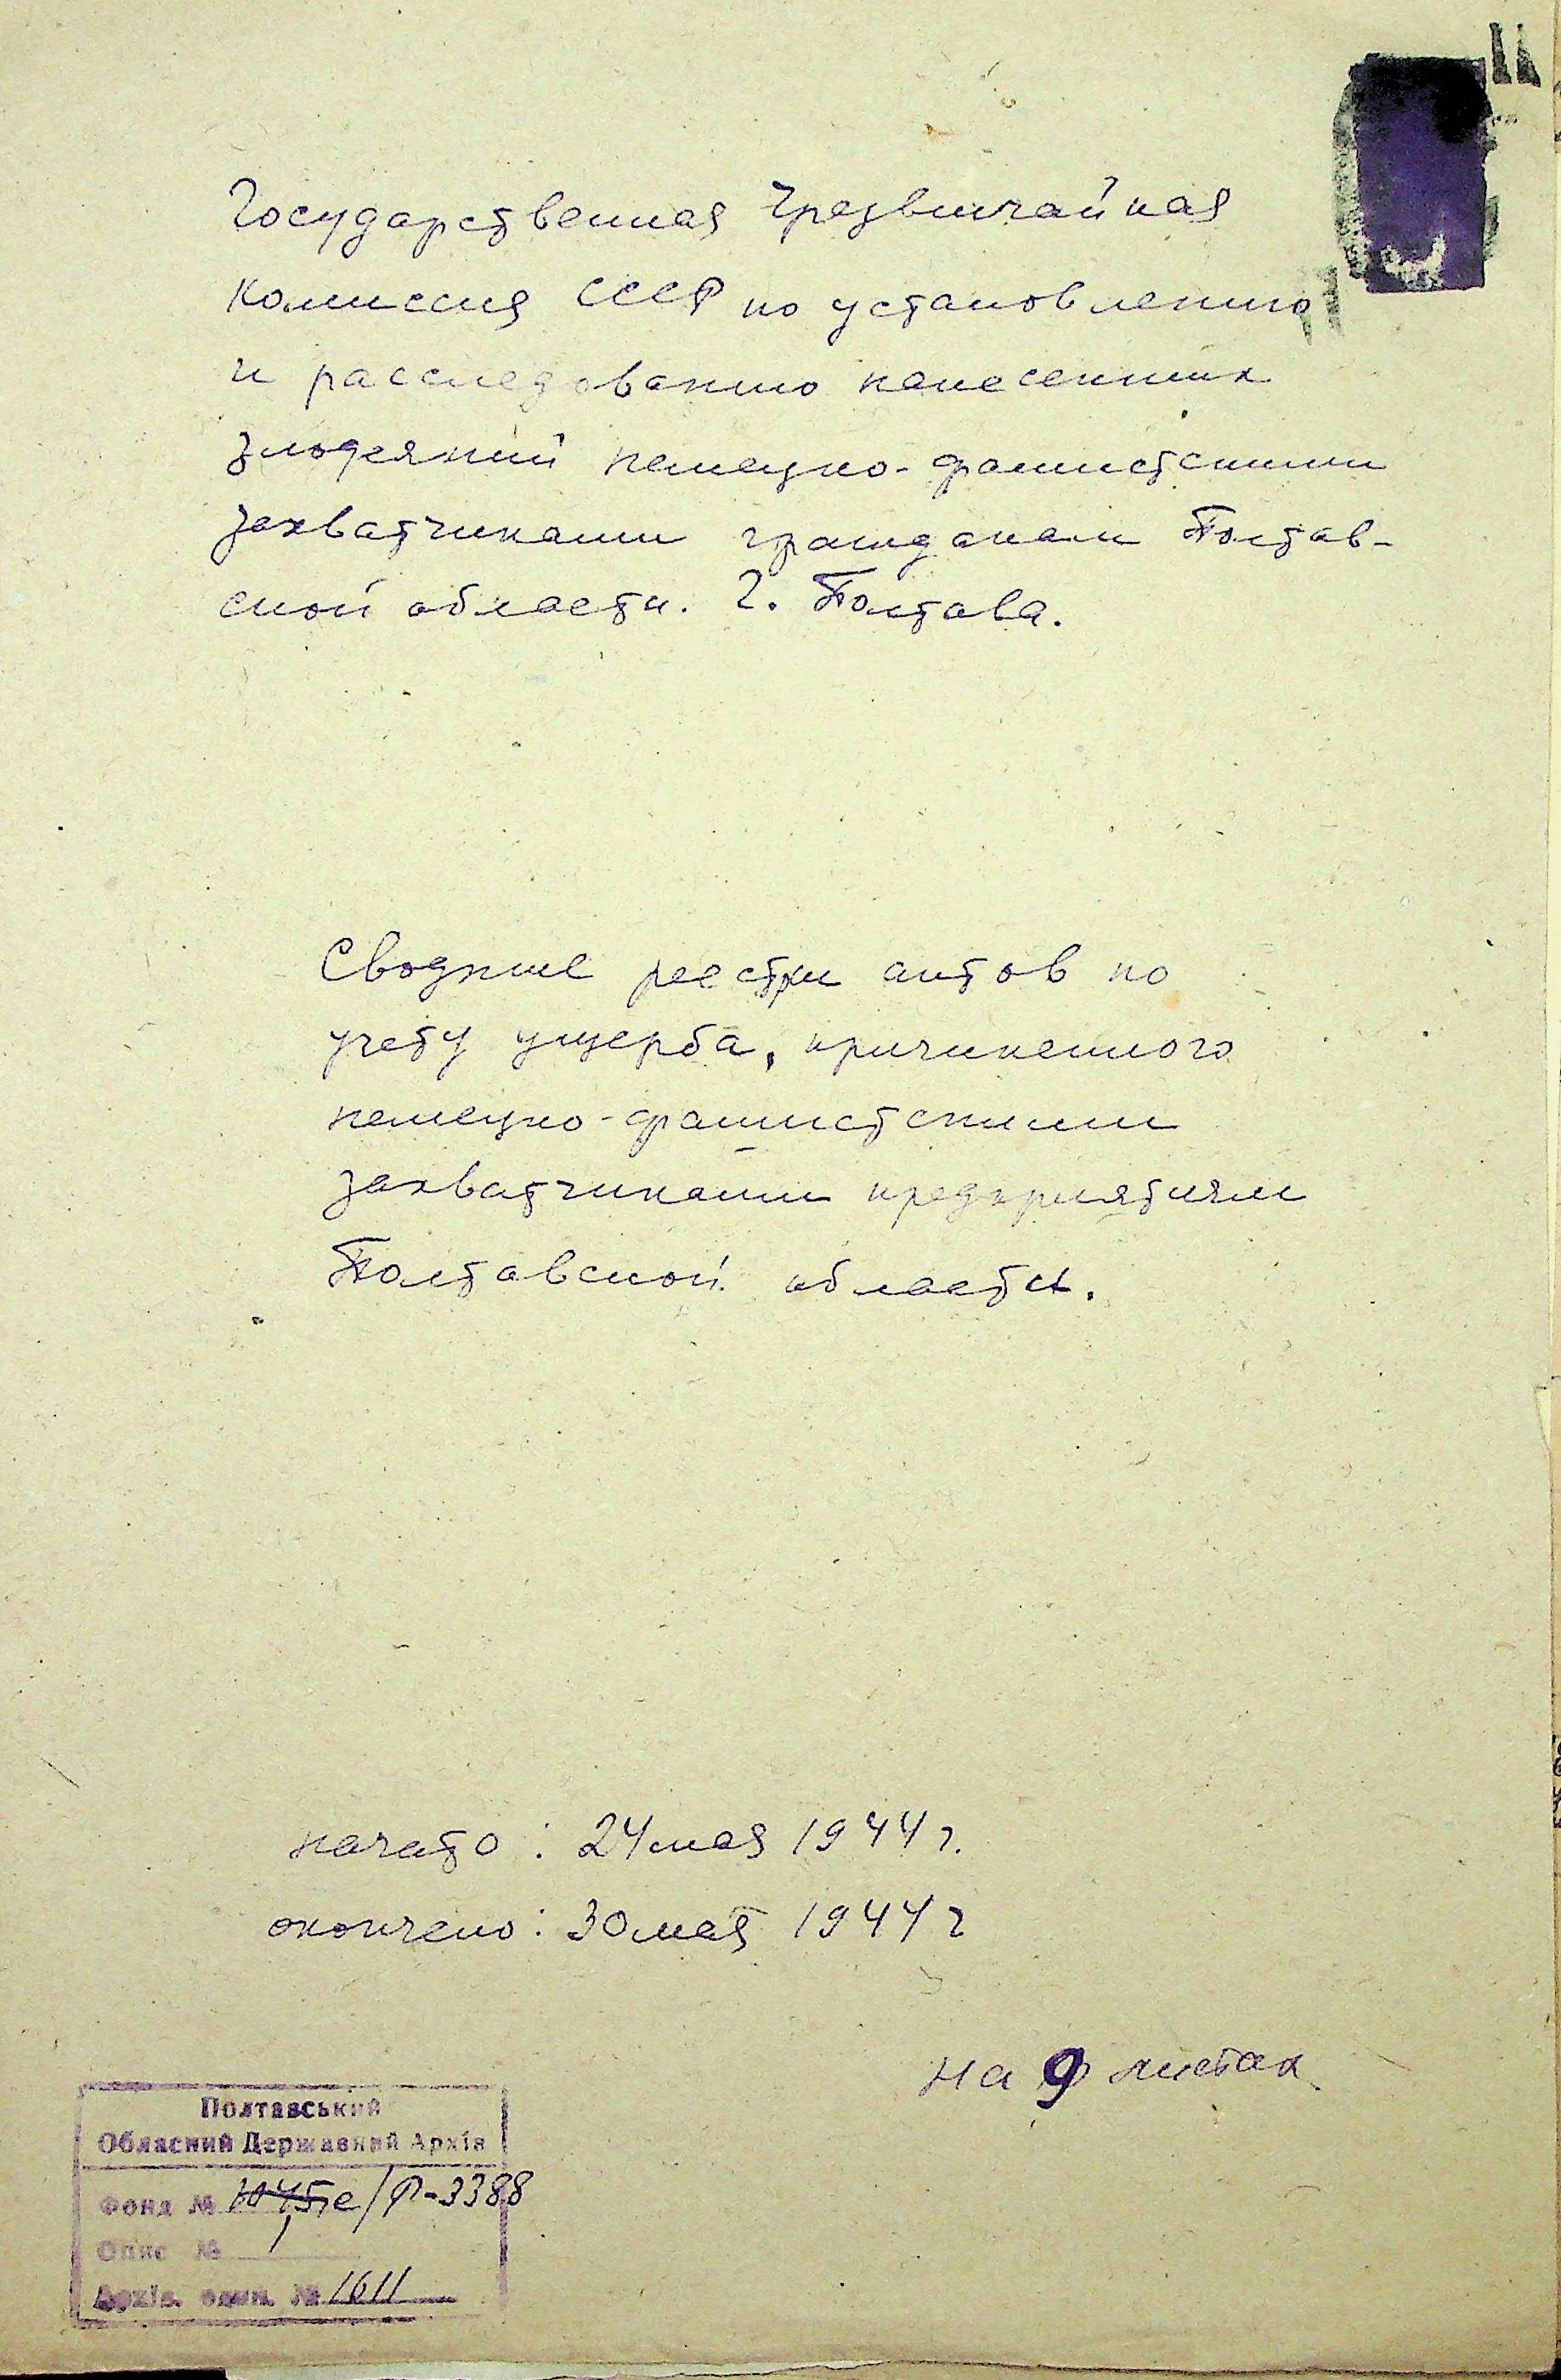 Государственная Чрезвычайная
Комиссия СССР по установлению
и расследованию нанесенных
злодеяний немецко-фашистскими
захватчиками гражданам Полтав-
ской области. г. Полтава.
Сводные реестры актов по
учету ущерба, причиненного
немецко-фашистскими
захватчиками предприятиям
Полтавской области.
начато: 24 мая 1944 г.
окончено: 30 мая 1944 г
на 9 листах
Полтавський
Обласний Державний Архів
Фонд № /Р-3388
Опис № 1
Архів. один. № 1611